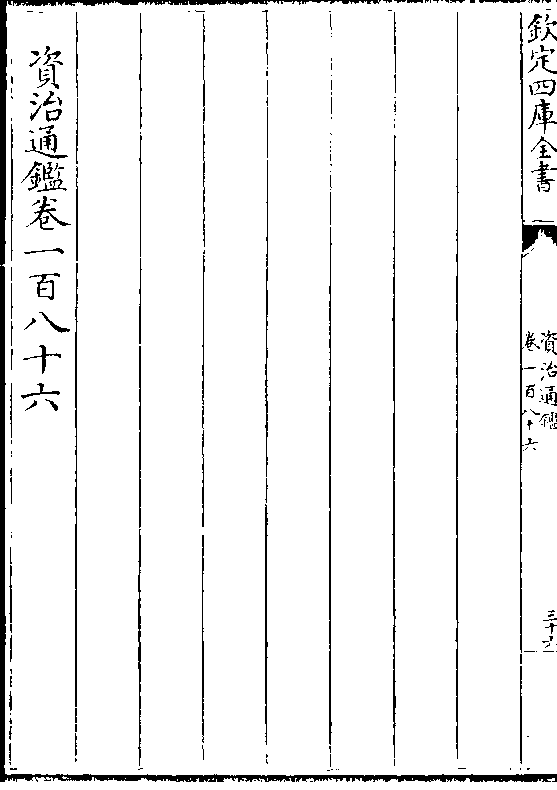 欽定四庫全書
資治通鑑
卷一百八十六
資治通鑑卷一百八十六